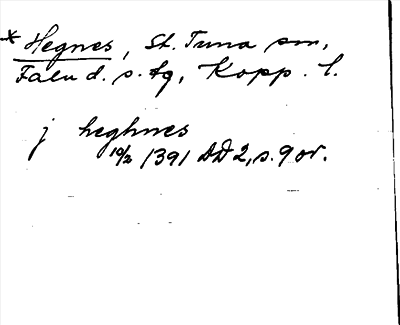 * Hegnes, St. Tuna sn,
Falu d. s. tg, Kopp. l.
j heghnes
10/2 1391 DD 2, s. 9 or.